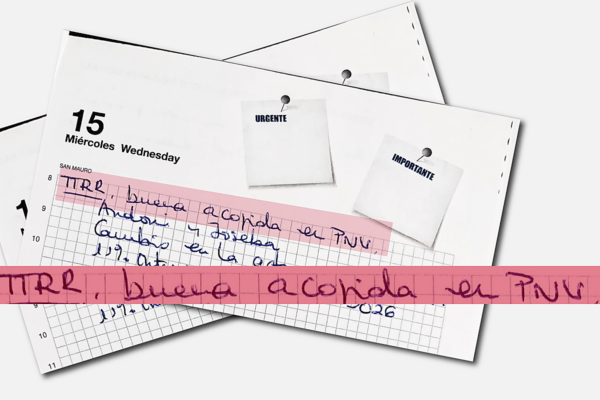 15
Miércoles Wednesday
SAN MAURO
URGENTE
IMPORTANTE
8
IIRR, buena acogida en PNV.
9
Andoni y Joseba
10
Cambio en la
IIRR, buena acogida en PNV.
026
9
10
11
1